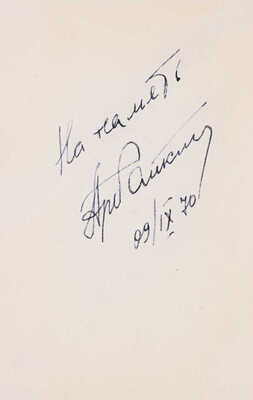 На память
АрРайкин
29/IX 70